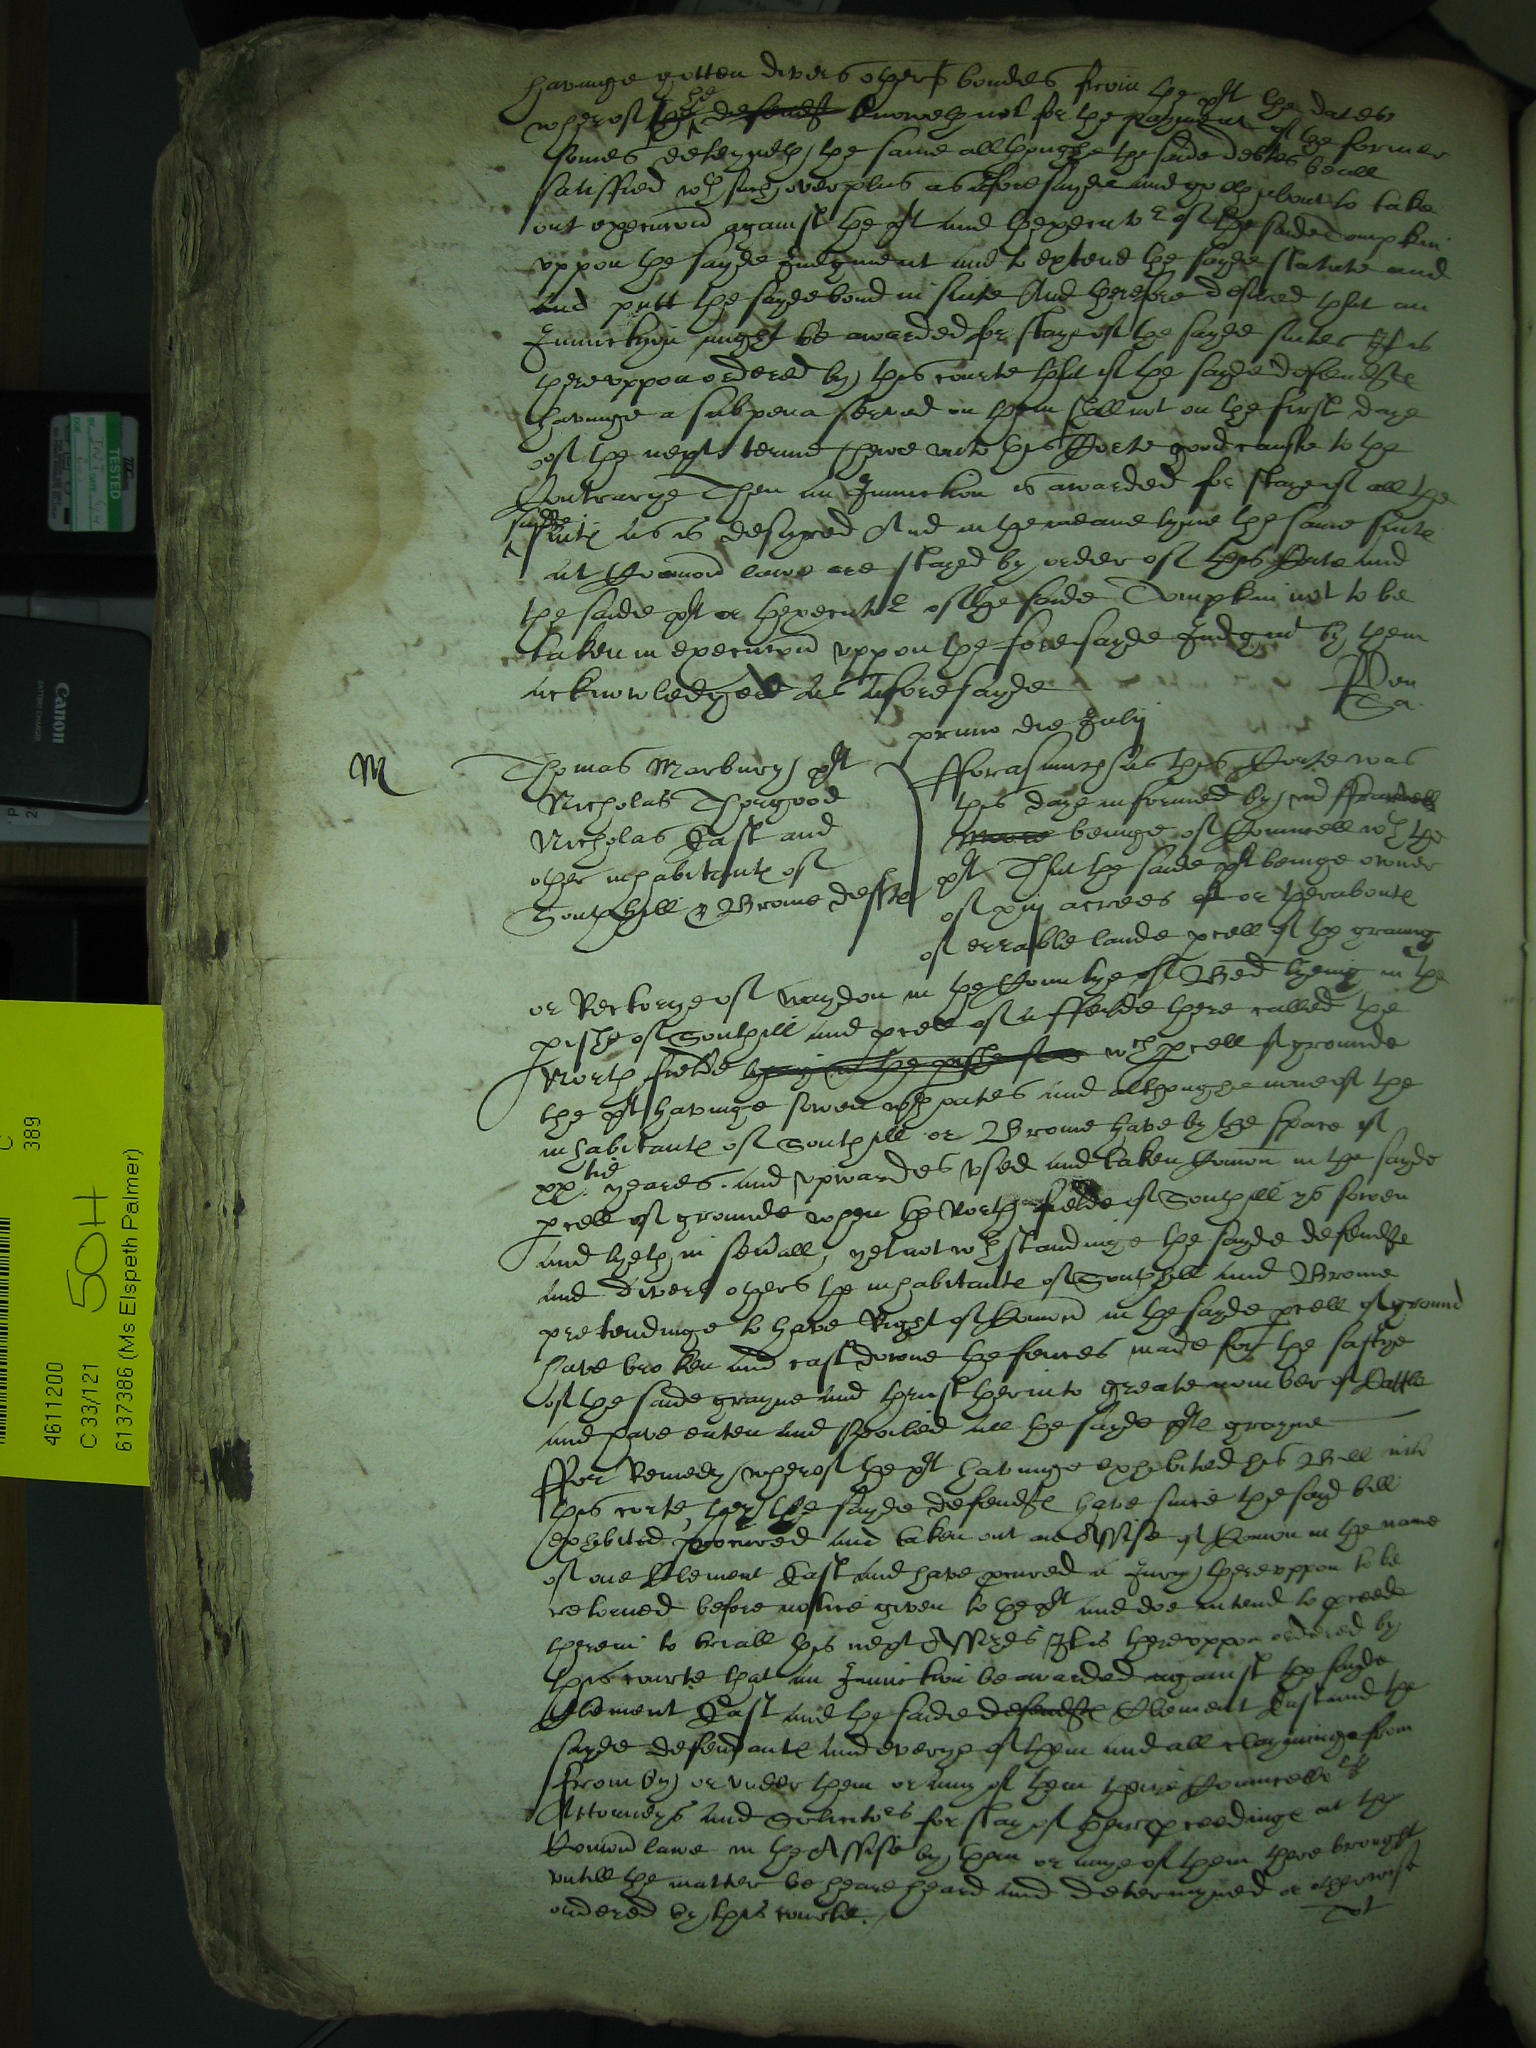 havinge gotten divers others bondes from the plt the dates
wherof he the defendt knoweth not for the payment of the former
somes deteyneth the same allthoughe the saide debtes be all
satisfied wth such overplus as aforesayde and goeth about to take
out execucon against the plt and thexecutor of the saide Tompkin
uppon the sayde Judgment and to extend the sayde statute and
and putt the sayde bond in suite And therefore desired that an
Injunction might be awarded for staye of the sayde suites It is
thereuppon ordered by this courte that if the sayde defendtes
havinge a subpena served on them shall not on the first daye
of the next terme shewe unto this Corte good cause to the
Contrarye Then an Injunction is awarded for staye of all the
saide
suites as is desyred And in the meane tyme the same suites
at Comon lawe are stayed by order of this Corte and
the saide plt or thexecutor of the saide Tompkin not to be
taken in execucon uppon the foresayde Judgmt by them
acknowledged as aforesayde
primo die Julij
M
Thomas Marbury plt
Nicholas Thorgood
Nicholas East and
other inhabitantes of
Southhill & Brome deftes
fforasmuch as this Corte was
this daye informed by mr
Moore beinge of Councell wth the
plt That the saide plt beinge owner
of xiij acrees of or therabouts
of errable lande pcell of the
or Rectorye of in the Countye of Bed lyeing in the
pishe of Southill and pcell of a ffeilde there called the
North fielde lyeing in the pishe of wch pcell of grounde
the plt havinge sowen wth oates and althoughe none of the
inhabitantes of Southill or Brome have by the space of
xxtie yeares and upwardes used and taken Comon in the sayde
pcell of grounde when the North fielde of Southill ys sowen
and lyeth in sevall, yet not wth standinge the sayde defendtes
and divers others the inhabitantes of Southhill and Brome
pretendinge to have Right of Comon in the sayde pcell of ground
have broken and cast downe the fences made for the saftye
of the saide grayne and thrust therinto greate nomber of Cattle
and have eaten and spoiled all the sayde plts grayne
ffor Remedy wherof the plt havinge exhibited his Bill into
this corte, they the sayde defendtes have since the sayd bill
exhibited procured and taken out an Assise of Comon in the name
of one Clement East and have pcured a Jury thereuppon to be
retorned before notice given to the plt and doe intend to pceede
therein to triall this next Assizes It is thereuppon ordered by
this courte that an Injunction be awarded against the sayde
Clement East and the saide defendtes Clement East and the
sayde defendantes and everye of them and all clayminge from
from by or under them or any of them theire Councellors
Attorneys and Solicitors for stay of their pceedinges at the
Comon lawe in the Assise by them or anye of them there brought
untill the matter be heare heard and determyned or otherwise
ordered by this courte.
TESTED
Canon
BATTERY CHARGER
C
389
50H
4611200
C 33/121
6137386 (Ms Elspeth Palmer)